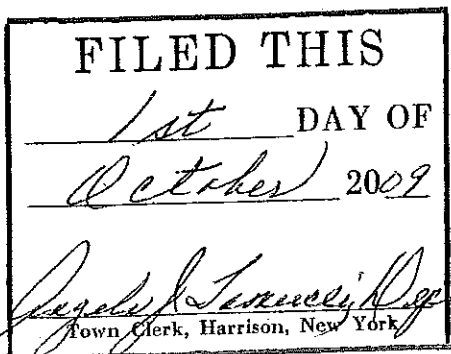 FILED THIS
1st DAY OF
October 2009
Town Clerk, Harrison, New York